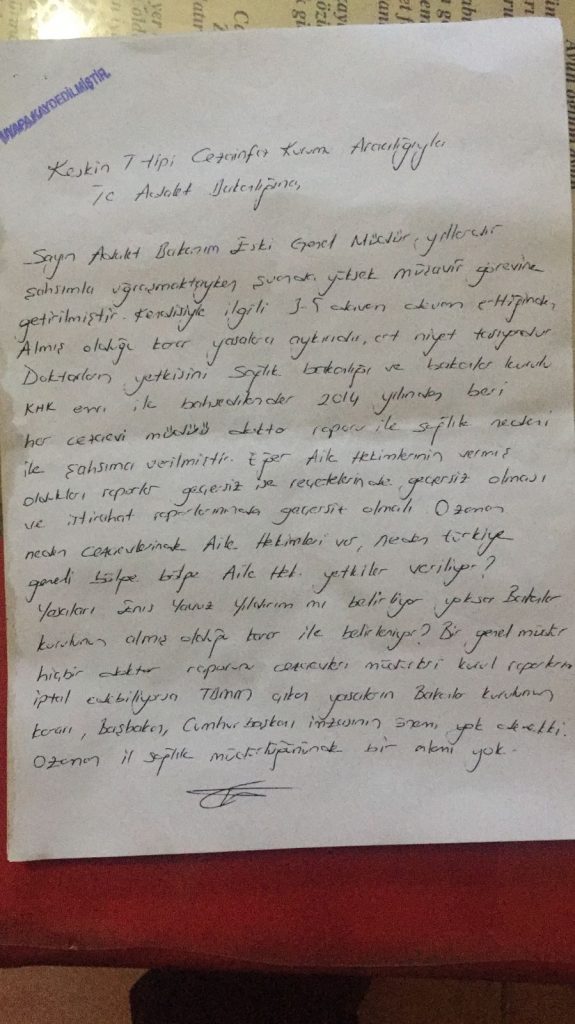 UYAPA KAYDEDİLMİŞTİR.
Keskin T tipi Cezainfaz Kurumu Aracılığıyla
Tc Adalet Bakanlığına,
Sayın Adalet Bakanım Eski Genel Müdür, yıllardır
şahsımla uğraşmaktayken şuanda yüksek müşavir görevine
getirilmiştir. Kendisiyle ilgili 3-5 davam devam ettiğinden
Almış olduğu karar yasalara aykırıdır, art niyet taşıyordur
Doktorların yetkisini Sağlık bakanlığı ve bakanlar kurulu
KHK emri ile 2014 yılından beri
her cezaevi müdürü doktor raporu ile sağlık nedeni
ile şahsıma verilmiştir. Eğer Aile Hekimlerinin vermiş
oldukları raporlar geçersiz ise reçetelerinde geçersiz olması
ve istirahat raporlarınında geçersiz olmalı. Ozaman
neden cezaevlerinde Aile Hekimleri var, neden türkiye
geneli bölge bölge Aile Hek. yetkiler veriliyor?
Yasaları Enis Yavuz Yıldırım mı belirliyor yoksa Bakanlar
kurulunun almış olduğu karar ile belirleniyor? Bir genel müdür
hiçbir doktor raporunu cezaevleri müdürleri kurul raporlarını
iptal edebiliyorsa TBMM çıkan yasaların Bakanlar kurulunun
kararı, Başbakan, Cumhurbaşkanı imzasının önemi yok demekki.
Ozaman il sağlık müdürlüğününde bir alanı yok.